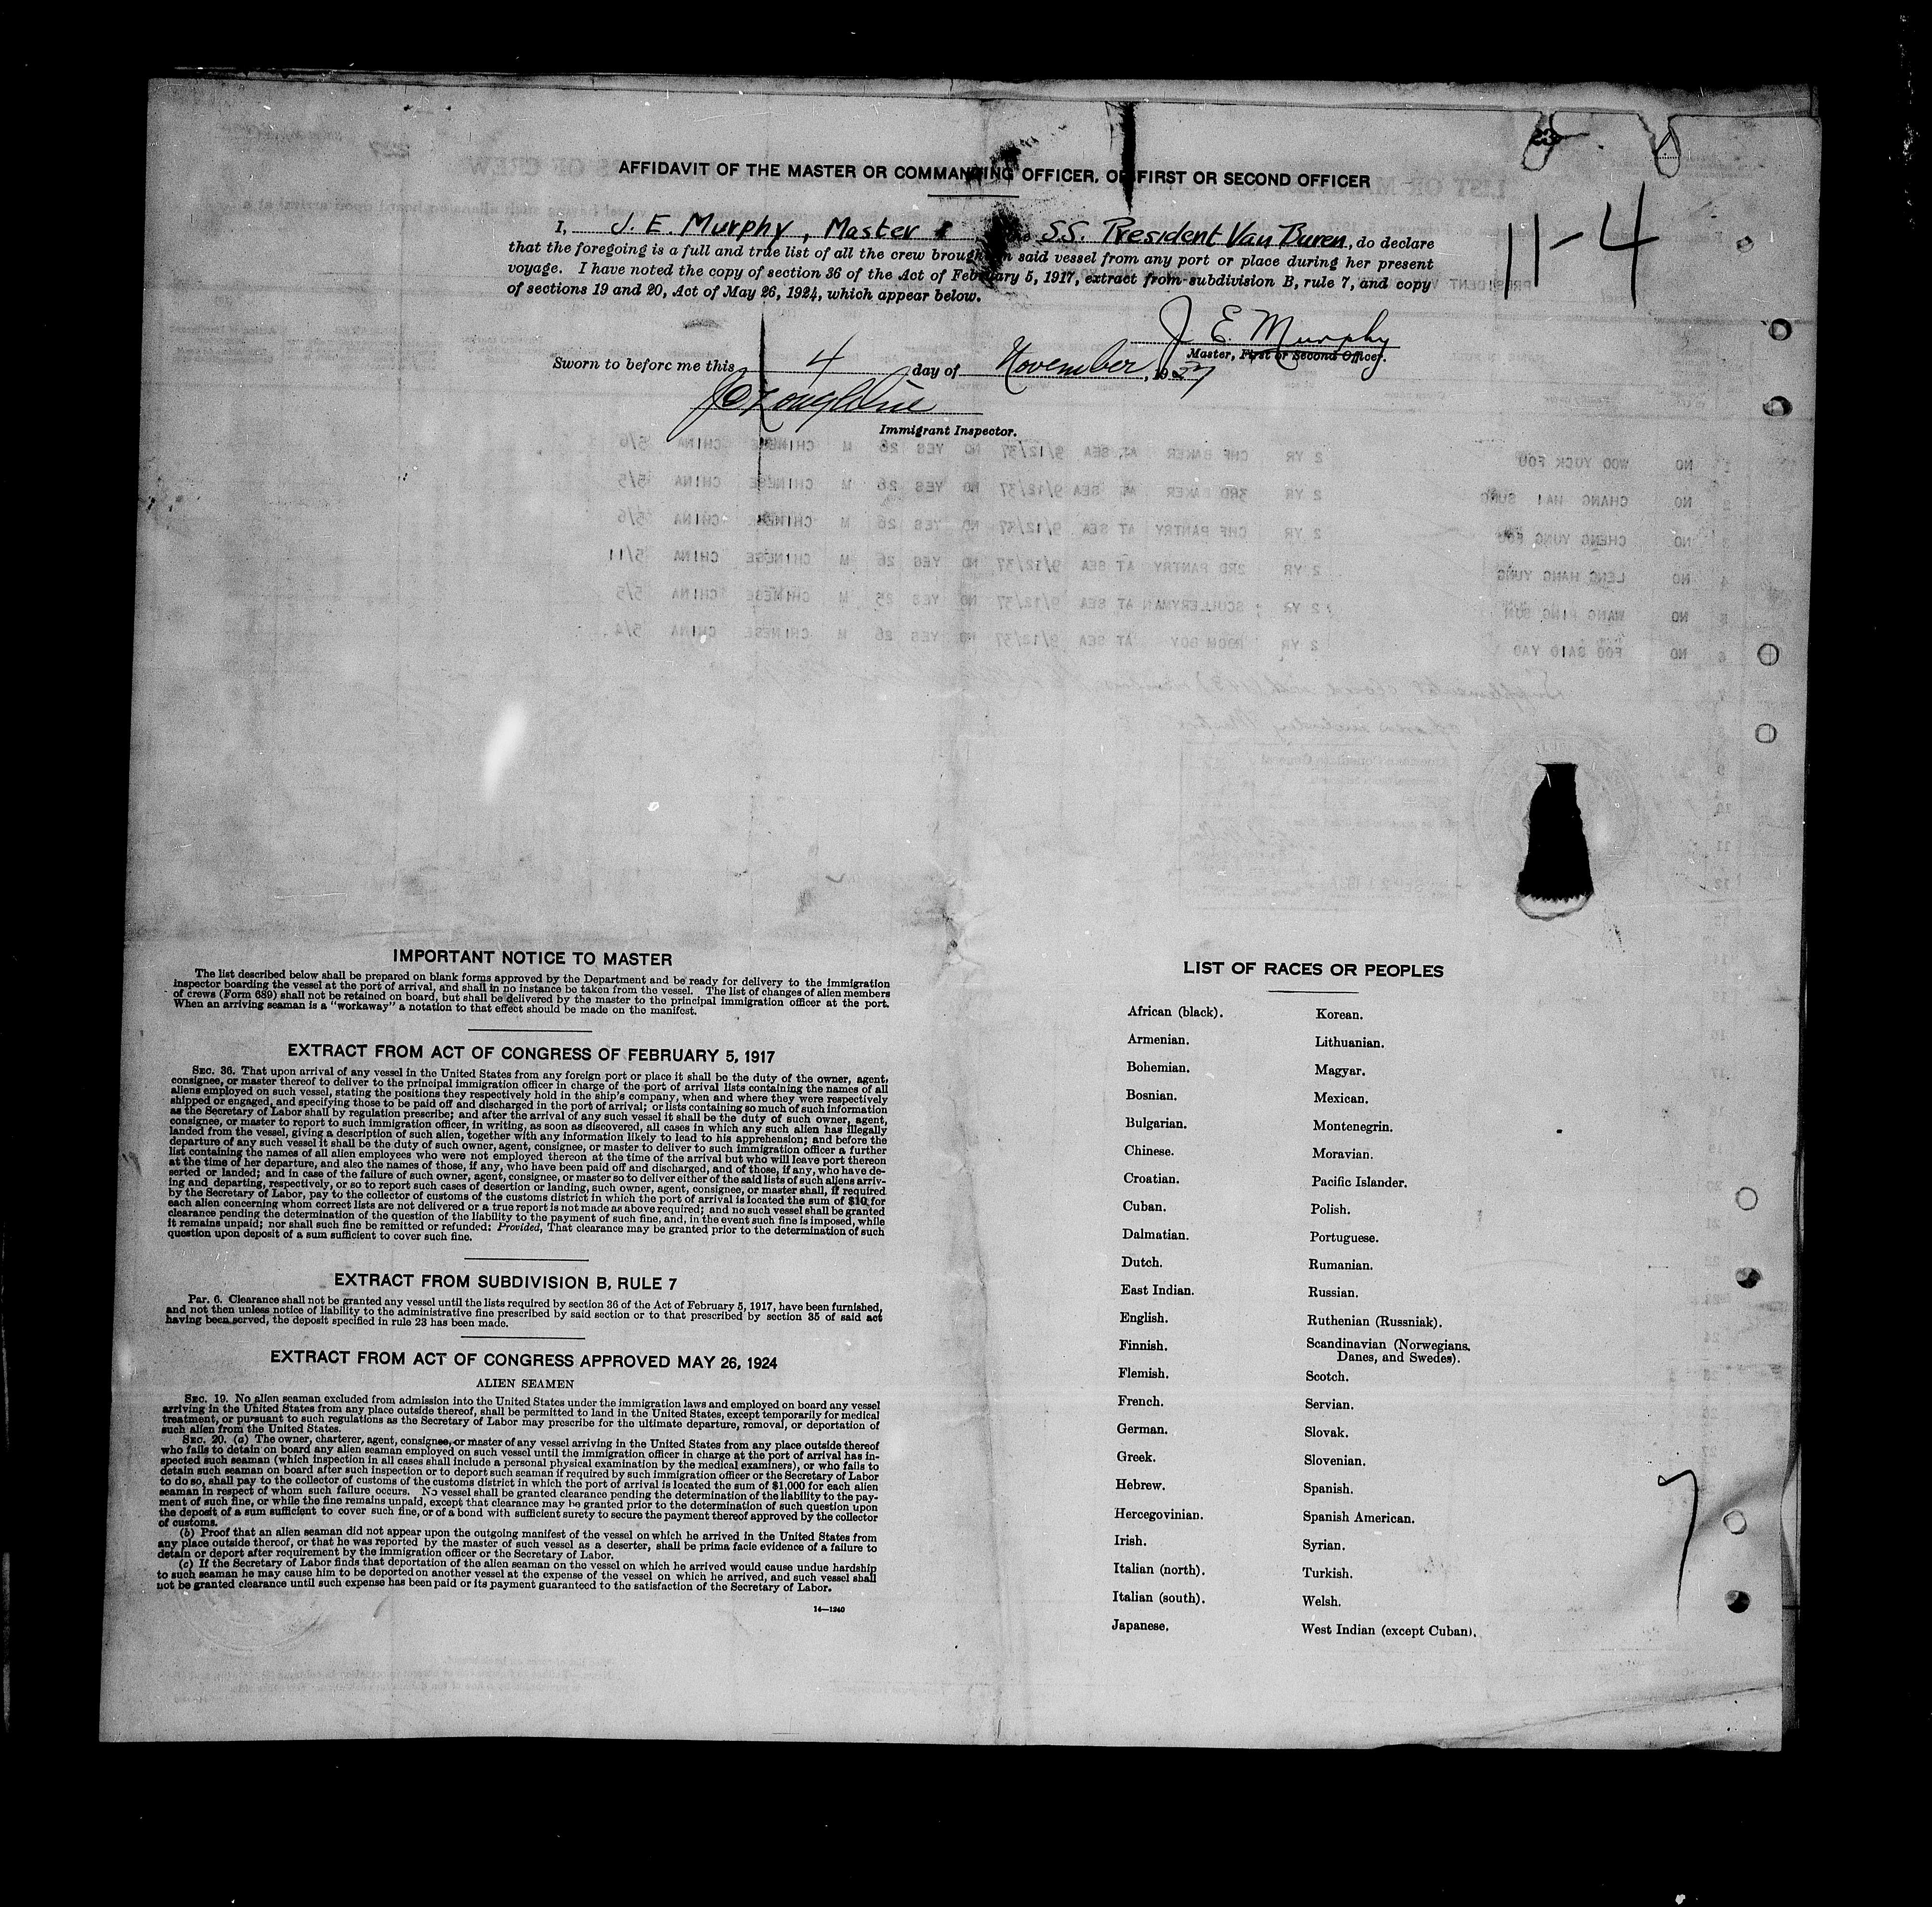 23
AFFIDAVIT OF THE MASTER OR COMMANDING OFFICER, OR FIRST OR SECOND OFFICER
11-4
I, J. E. Murphy, Master SS. President Van Buren, do declare
that the foregoing is a full and true list of all the crew brought in said vessel from any port or place during her present
voyage. I have noted the copy of section 36 of the Act of February 5, 1917, extract from subdivision B, rule 7, and copy
of sections 19 and 20, Act of May 26, 1924, which appear below.
J E Murphy
Master, First or Second Officer.
Sworn to before me this 4 day of November, 1937
Immigrant Inspector.
IMPORTANT NOTICE TO MASTER
The list described below shall be prepared on blank forms approved by the Department and be ready for delivery to the immigration
inspector boarding the vessel at the port of arrival, and shall in no instance be taken from the vessel. The list of changes of alien members
of crews (Form 689) shall not be retained on board, but shall be delivered by the master to the principal immigration officer at the port.
When an arriving seaman is a "workaway" a notation to that effect should be made on the manifest.
EXTRACT FROM ACT OF CONGRESS OF FEBRUARY 5, 1917
SEC. 36. That upon arrival of any vessel in the United States from any foreign port or place it shall be the duty of the owner, agent,
consignee, or master thereof to deliver to the principal immigration officer in charge of the port of arrival lists containing the names of all
aliens employed on such vessel, stating the positions they respectively hold in the ship's company, when and where they were respectively
shipped or engaged, and specifying those to be paid off and discharged in the port of arrival; or lists containing so much of such information
as the Secretary of Labor shall by regulation prescribe; and after the arrival of any such vessel it shall be the duty of such owner, agent,
consignee, or master to report to such immigration officer, in writing, as soon as discovered, all cases in which any such alien has illegally
landed from the vessel, giving a description of such alien, together with any information likely to lead to his apprehension; and before the
departure of any such vessel it shall be the duty of such owner, agent, consignee, or master to deliver to such immigration officer a further
list containing the names of all alien employees who were not employed thereon at the time of the arrival but who will leave port thereon
at the time of her departure, and also the names of those, if any, who have been paid off and discharged, and of those, if any, who have de-
serted or landed; and in case of the failure of such owner, agent, consignee, or master so to deliver either of the said lists of such aliens arriv-
ing and departing, respectively, or so to report such cases of desertion or landing, such owner, agent, consignee, or master shall, if required
by the Secretary of Labor, pay to the collector of customs of the customs district in which the port of arrival is located the sum of $10 for
each alien concerning whom correct lists are not delivered or a true report is not made as above required; and no such vessel shall be granted
clearance pending the determination of the question of the liability to the payment of such fine, and, in the event such fine is imposed, while
it remains unpaid; nor shall such fine be remitted or refunded: Provided, That clearance may be granted prior to the determination of such
question upon deposit of a sum sufficient to cover such fine.
EXTRACT FROM SUBDIVISION B, RULE 7
Par. 6. Clearance shall not be granted any vessel until the lists required by section 36 of the Act of February 5, 1917, have been furnished,
and not then unless notice of liability to the administrative fine prescribed by said section or to that prescribed by section 35 of said act
having been served, the deposit specified in rule 23 has been made.
EXTRACT FROM ACT OF CONGRESS APPROVED MAY 26, 1924
ALIEN SEAMEN
SEC. 19. No alien seaman excluded from admission into the United States under the immigration laws and employed on board any vessel
arriving in the United States from any place outside thereof, shall be permitted to land in the United States, except temporarily for medical
treatment, or pursuant to such regulations as the Secretary of Labor may prescribe for the ultimate departure, removal, or deportation of
such alien from the United States.
SEC. 20. (a) The owner, charterer, agent, consignee, or master of any vessel arriving in the United States from any place outside thereof
who fails to detain on board any alien seaman employed on such vessel until the immigration officer in charge at the port of arrival has in-
spected such seaman (which inspection in all cases shall include a personal physical examination by the medical examiners), or who fails to
detain such seaman on board after such inspection or to deport such seaman if required by such immigration officer or the Secretary of Labor
to do so, shall pay to the collector of customs of the customs district in which the port of arrival is located the sum of $1,000 for each alien
seaman in respect of whom such failure occurs. No vessel shall be granted clearance pending the determination of the liability to the pay-
ment of such fine, or while the fine remains unpaid, except that clearance may be granted prior to the determination of such question upon
the deposit of a sum sufficient to cover such fine, or of a bond with sufficient surety to secure the payment thereof approved by the collector
of customs.
(b) Proof that an alien seaman did not appear upon the outgoing manifest of the vessel on which he arrived in the United States from
any place outside thereof, or that he was reported by the master of such vessel as a deserter, shall be prima facie evidence of a failure to
detain or deport after requirement by the immigration officer or the Secretary of Labor.
(c) If the Secretary of Labor finds that deportation of the alien seaman on the vessel on which he arrived would cause undue hardship
to such seaman he may cause him to be deported on another vessel at the expense of the vessel on which he arrived, and such vessel shall
not be granted clearance until such expense has been paid or its payment guaranteed to the satisfaction of the Secretary of Labor.
14—1240
LIST OF RACES OR PEOPLES
African (black).
Armenian.
Bohemian.
Bosnian.
Bulgarian.
Chinese.
Croatian.
Cuban.
Dalmatian.
Dutch.
East Indian.
English.
Finnish.
Flemish.
French.
German.
Greek.
Hebrew.
Hercegovinian.
Irish.
Italian (north).
Italian (south).
Japanese.
Korean.
Lithuanian.
Magyar.
Mexican.
Montenegrin.
Moravian.
Pacific Islander.
Polish.
Portuguese.
Rumanian.
Russian.
Ruthenian (Russniak).
Scandinavian (Norwegians,
Danes, and Swedes).
Scotch.
Servian.
Slovak.
Slovenian.
Spanish.
Spanish American.
Syrian.
Turkish.
Welsh.
West Indian (except Cuban).
7